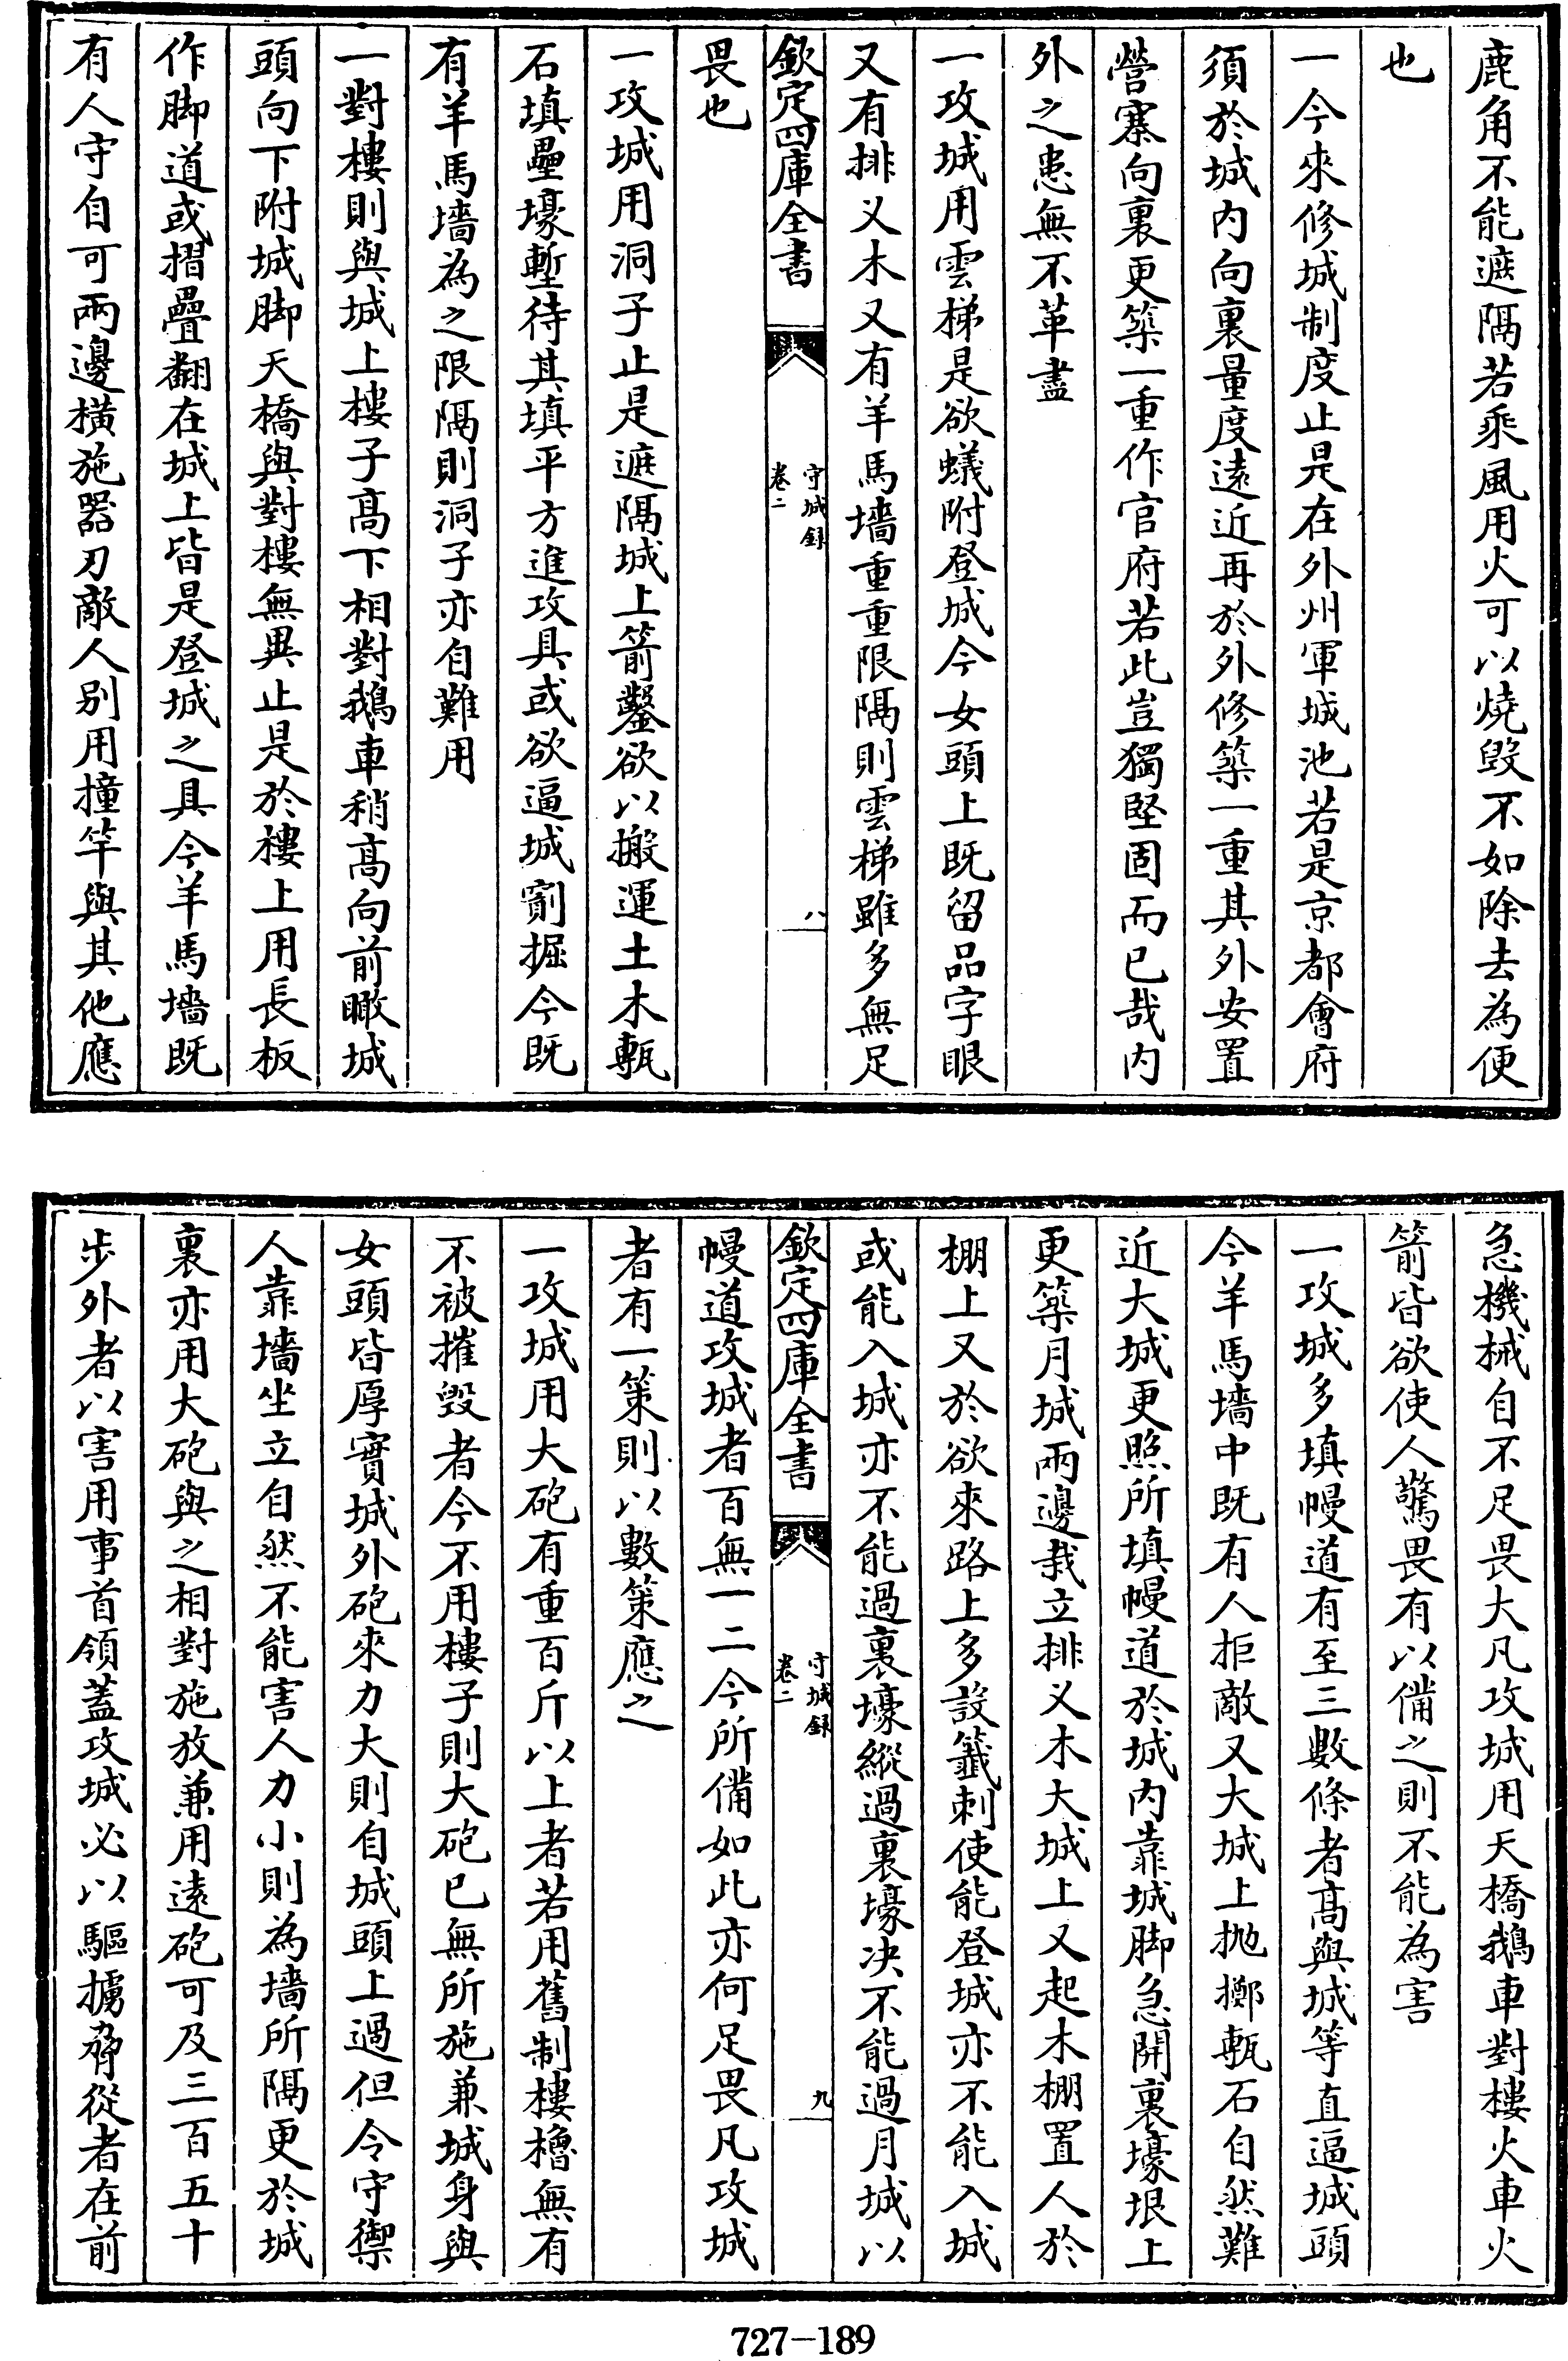 鹿角不能遮隔若乘風用火可以燒毁不如除去為便
也
一今來修城制度止是在外州軍城池若是京都會府
須於城内向裏量度遠近再於外修築一重其外安置
營寨向裏更築一重作官府若此豈獨堅固而已哉内
外之患無不革盡
一攻城用雲梯是欲蟻附登城今女頭上既留品字眼
又有排义木又有羊馬墻重重限隔則雲梯雖多無足
欽定四庫全書
守城録
卷二
八
畏也
一攻城用洞子止是遮隔城上箭鑿欲以搬運土木甎
石填壘壕塹待其填平方進攻具或欲逼城劄掘今既
有羊馬墻為之限隔則洞子亦自難用
一對樓則與城上樓子高下相對鵝車稍高向前瞰城
頭向下附城脚天橋與對樓無異止是於樓上用長板
作脚道或摺疊翻在城上皆是登城之具今羊馬墻既
有人守自可兩邊橫施器刃敵人别用撞竿與其他應
急機械自不足畏大凡攻城用天橋鵝車對樓火車火
箭皆欲使人驚畏有以備之則不能為害
一攻城多填幔道有至三數條者高與城等直逼城頭
今羊馬墻中既有人拒敵又大城上抛擲甎石自然難
近大城更照所填幔道於城内靠城脚急開裏壕垠上
更築月城兩邊栽立排义木大城上又起木棚置人於
棚上又於欲來路上多設籤刺使能登城亦不能入城
或能入城亦不能過裏壕縱過裏壕决不能過月城以
欽定四庫全書
守城録
卷二
九
幔道攻城者百無一二今所備如此亦何足畏凡攻城
者有一策則以數策應之
一攻城用大砲有重百斤以上者若用舊制樓櫓無有
不被摧毁者今不用樓子則大砲已無所施兼城身與
女頭皆厚實城外砲來力大則自城頭上過但令守禦
人靠墻坐立自然不能害人力小則為墻所隔更於城
裏亦用大砲與之相對施放兼用遠砲可及三百五十
步外者以害用事首領蓋攻城必以驅擄脅從者在前
727-189